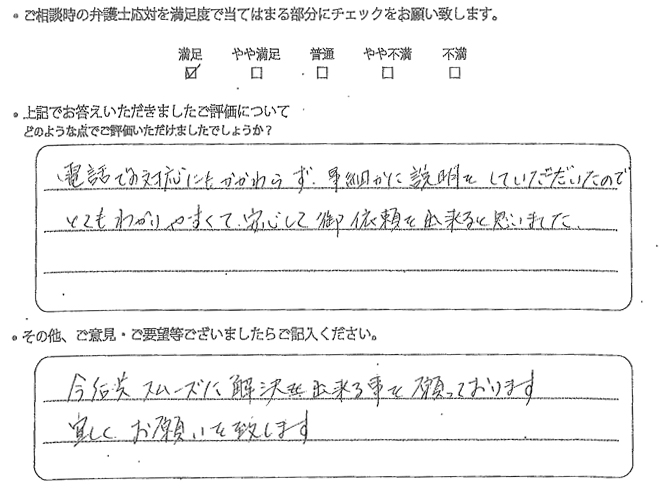 ・ご相談時の弁護士応対を満足度で当てはまる部分にチェックをお願い致します。
満足 やや満足 普通 やや不満 不満
☑ □ □ □ □
・上記でお答えいただきましたご評価について
どのような点でご評価いただけましたでしょうか？
電話でお対応にもかかわらず、事細かに説明をしていただいたので
とてもわかりやすくて、安心して御依頼を出来ると思いました。
・その他、ご意見・ご要望等ございましたらご記入ください。
スムーズに解決出来る事を願っております
宜しくお願いを致します